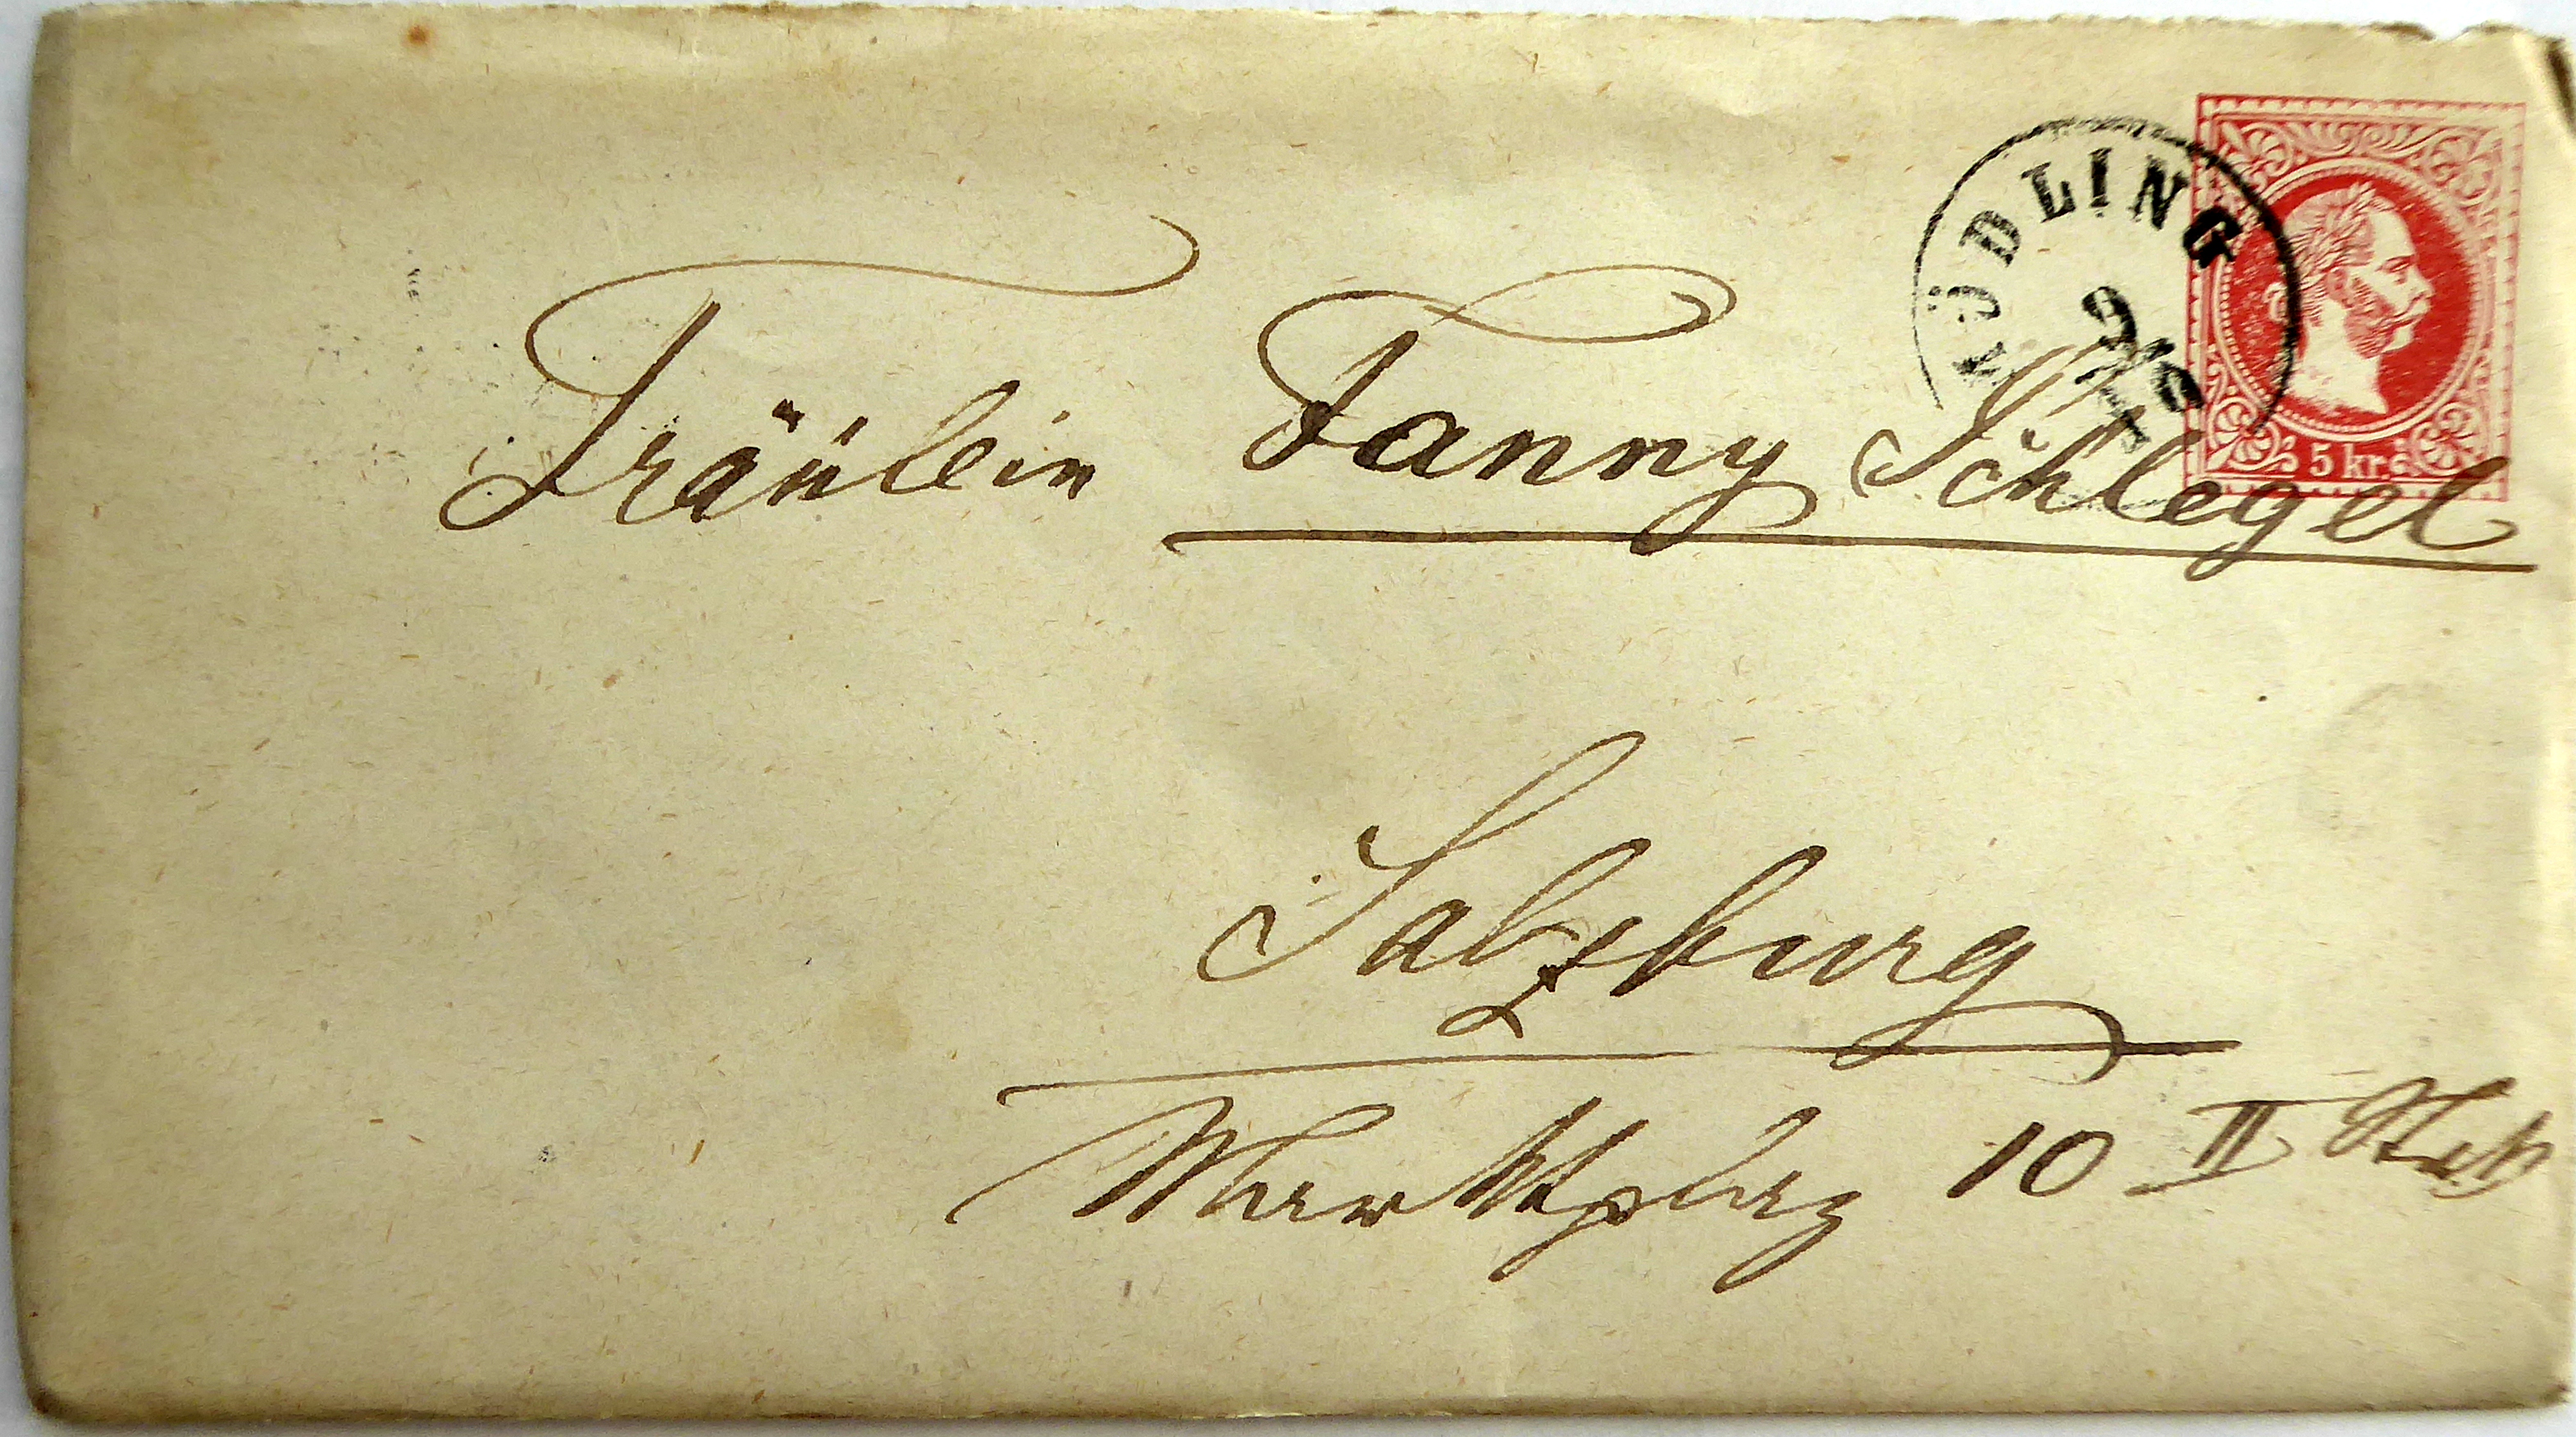 MÖDLING
9/10
5 kr.
Fräulein Fanny Schlegel
Salzburg
Marktplatz 10 II Stck